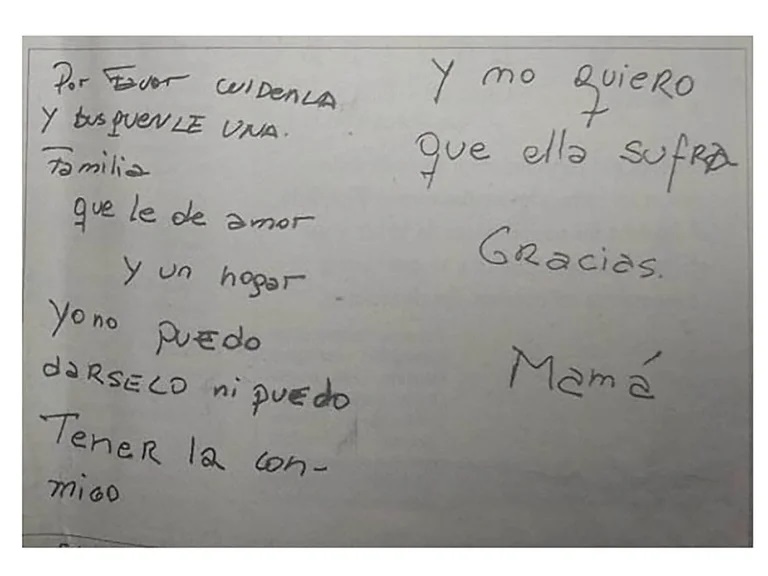 Por Favor cuidenla
Y busquenle una.
Familia
que le de amor
Y un hogar
Yo no puedo
darselo ni puedo
Tener la con-
migo
Y no quiero
que ella sufra
Gracias.
Mamá